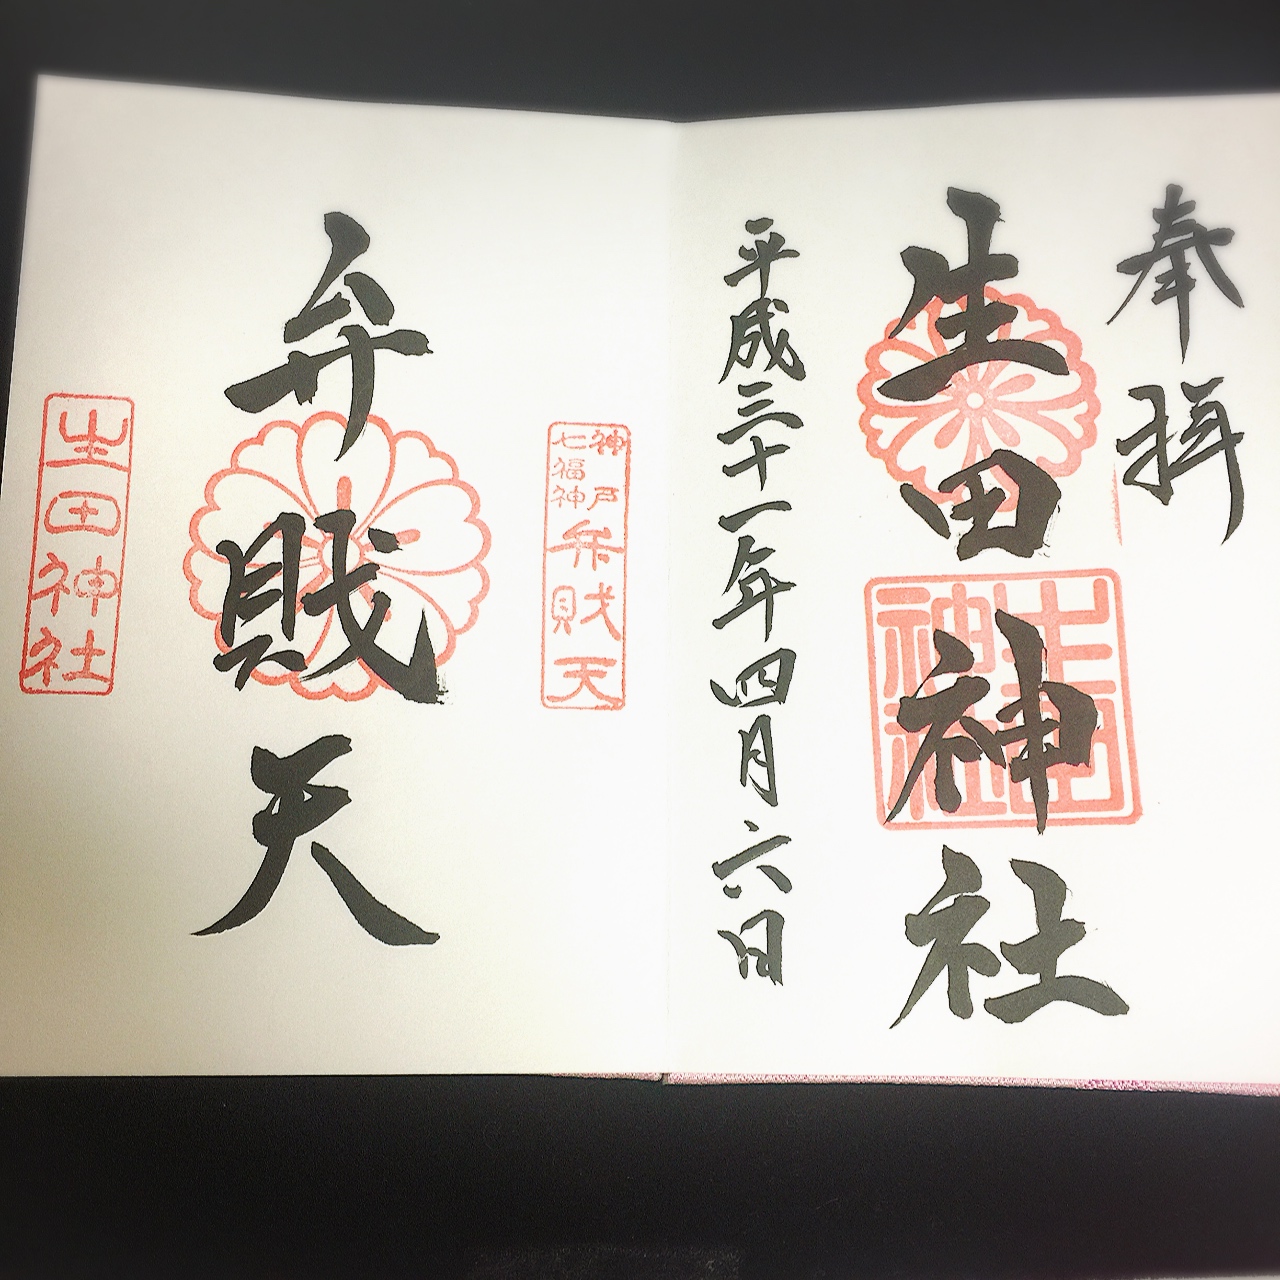 奉拝
生田神社
生田神社
平成三十一年四月六日
神戸
七福神
弁財天
弁財天
生田神社